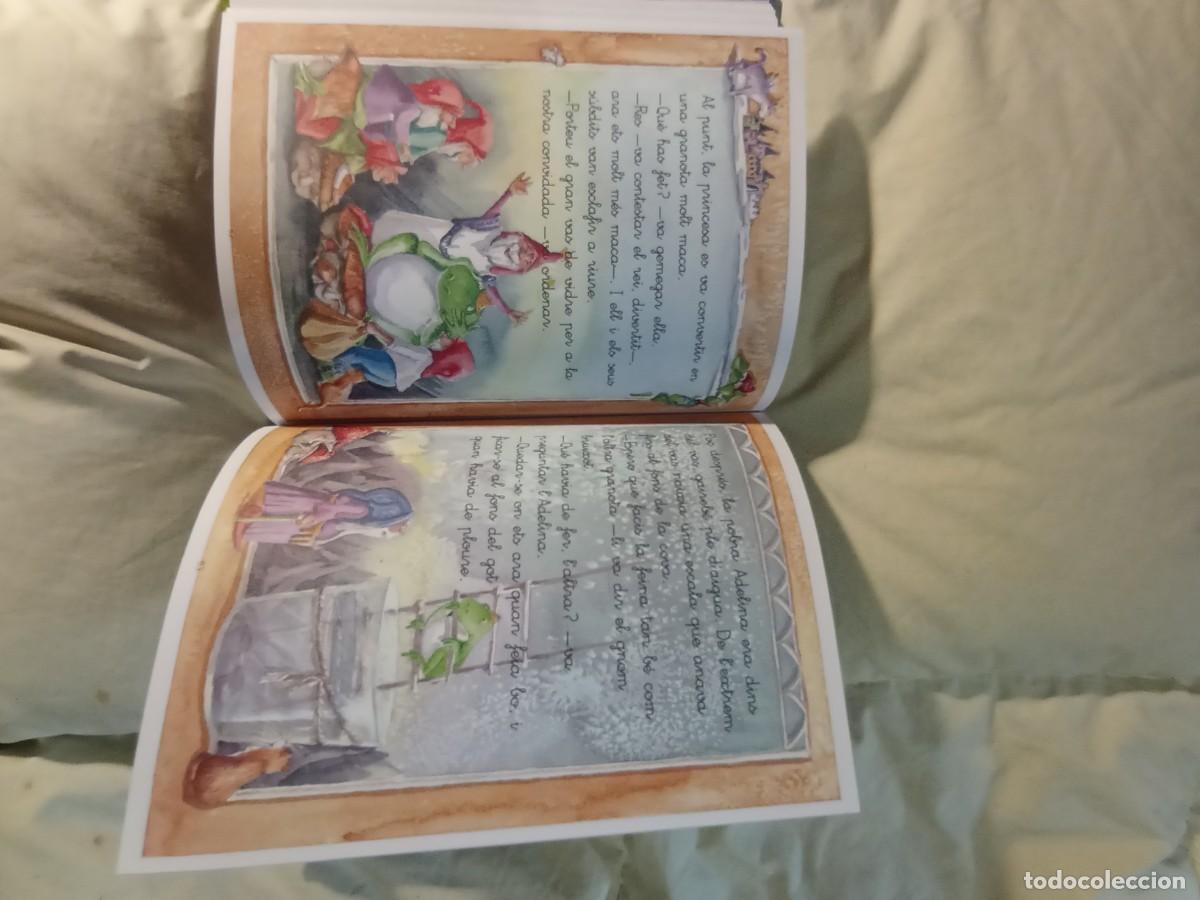 Al punt, la princesa es va convertir en
una granota molt maca.
—Què has fet? —va gemegar ella.
—Res —va contestar el rei, divertit—,
ara ets molt més maca—. I ell i els seus
súbdits van esclafir a riure.
—Porteu el gran vas de vidre per a la
nostra convidada —va ordenar.
Poc després, la pobra Adelina era dins
del vas, gairebé ple d'aigua. De l'extrem
del vas naixia una escala que anava
fins al fons de la cova.
—Espero que facis la feina tan bé com
l'altra granota —li va dir el gnom
—Què havia de fer, l'altra? —va
preguntar l'Adelina.
—Quedar-se on ets ara quan feia bo, i
ficar-se al fons del got
quan havia de ploure.
todocoleccion